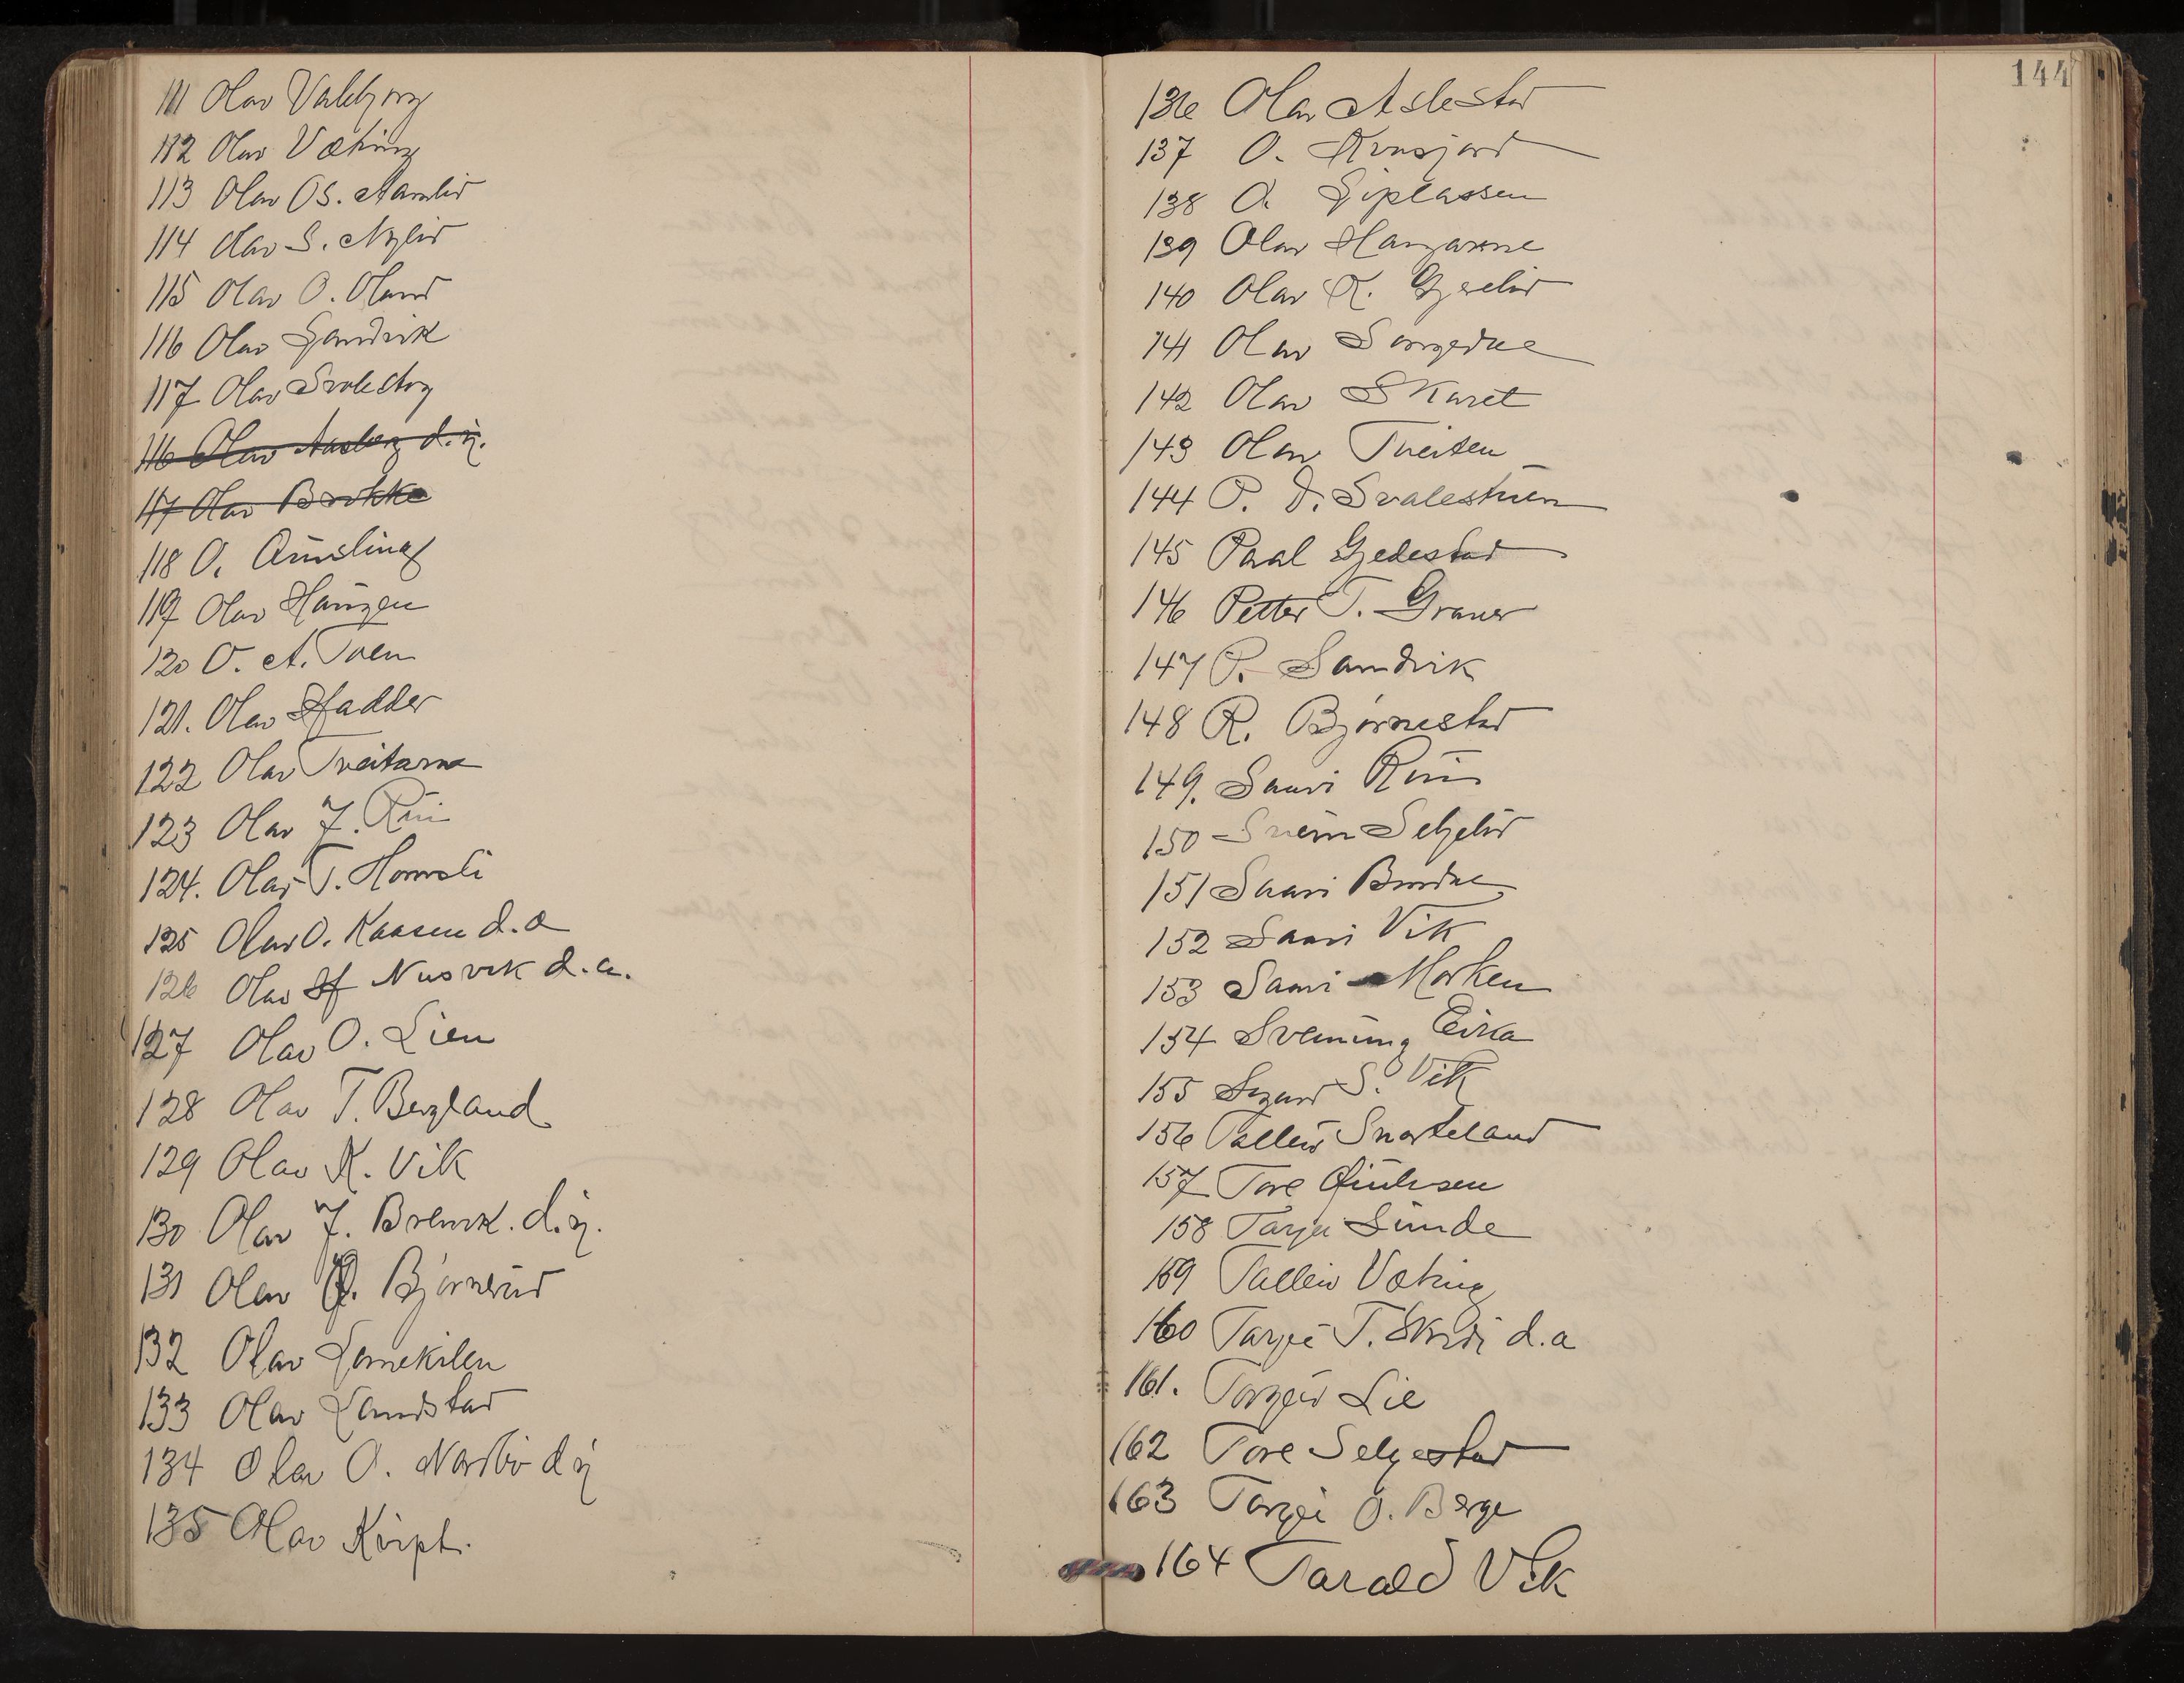 111 Olav Valbjorg
112 Olav Væting
113 Olav Os. Aamlid
114 Olav S. Nylid
115 Olav O. Oland
116 Olav Sandvik
117 Olav
116 Olav Aasberg d.y.
117 Olav Brokke
118 O. Amsling
119 Olav Haugen
120 O. A. Toen
121. Olav Hadder
122 Olav Tveitane
123 Olav J. Rui
124. Olav T. Homsli
125 Olav O. Kaasen d.a
126 Olav H Nusvik d.a.
127 Olav O. Lien
128 Olav T. Bergland
129 Olav K. Vik
130 Olav J. Brevik. d.y.
131 Olav Bjørnerud
132 Olav Lonekilen
133 Olav Landstad
134 Olav O. Nordbø d y
135 Olav Kvipt.
144
136 Olav Aslestad
137 O.
138 O. Giplassen
139 Olav Haugann
140 Olav K. Gjerelid
141 Olav Songedal
142 Olav Skaret
143 Olav Tveiten
144 P. D. Svalestuen
145 Paal Gjedestad
146 Petter T. Graver
147 P. Sandvik
148 R. Bjørnestad
149. Saavi Rui
150 Svein Seljelid
151 Saavi
152 Saavi Vik
153 Saavi Morken
154 Svenung Eika
155 Sigurd S. Vik
156 Talleiv Snarteland
157 Tore
158 Tarjei Sunde
159 Talleiv Væting
160 Tarjei T. Skrdi d.a
161. Torgeir Lie
162 Tore Seljestad
163 Tarjei O. Berge
164 Tarald Vik